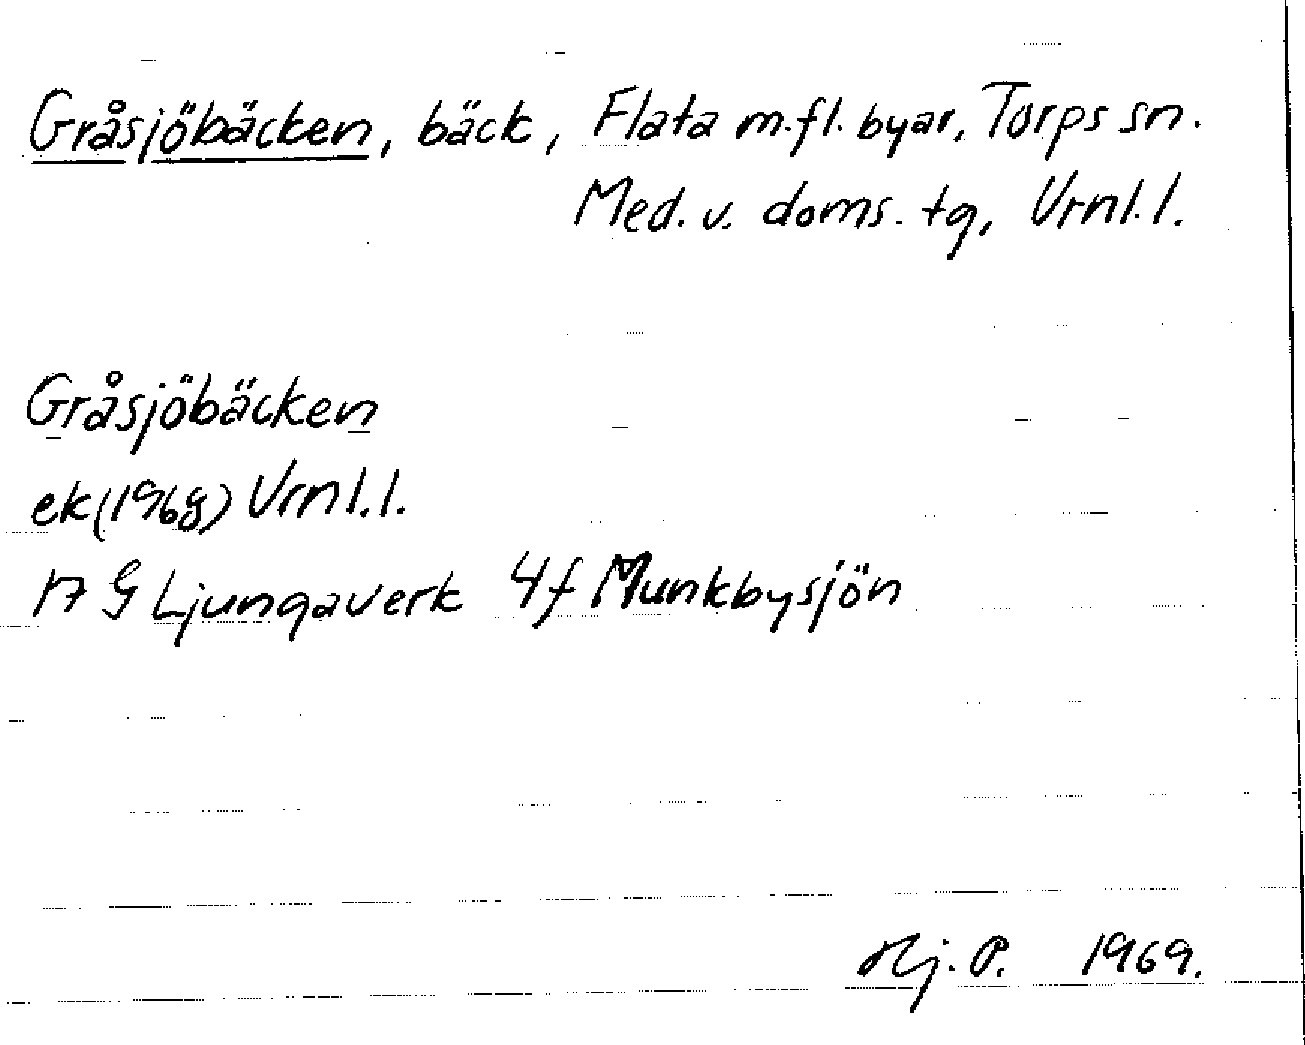 Gråsjöbäcken, bäck, Flata m.fl. byar, Torps sn.
Med. v. doms. tg, Vrnl. l.
Gråsjöbäcken
ek (1968) Vrnl. l.
17 G Ljungaverk 4f Munkbysjön
Hj. P. 1969.